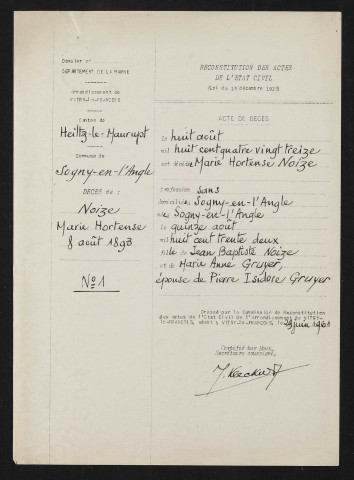 Dossier n°
DEPARTEMENT DE LA MARNE
Arrondissement de
VITRY-LE-FRANCOIS
Canton de
Heiltz-le-Maurupt
Commune de
Sogny-en-l'Angle
DECES de :
Noize
Marie Hortense
8 août 1893
N°1
RECONSTITUTION DES ACTES
DE L'ETAT CIVIL
(Loi du 15 décembre 1923
ACTE DE DECES
Le huit août
mil huit cent quatre vingt treize
est décédé Marie Hortense Noize
profession sans
domicilié Sogny-en-l'Angle
né Sogny-en-l'Angle
le quinze août
mil huit cent trente deux
fille de Jean Baptiste Noize
et de Marie Anne Gruyer,
épouse de Pierre Isidore Gruyer
Dressé par la Commission de Reconstitution
des actes de l'Etat Civil de l'arrondissement de VITRY-
LE-FRANCOIS, séant à VITRY-LE-FRANCOIS, le 29 juin 1961
Certifié par Nous,
Secrétaire soussigné,